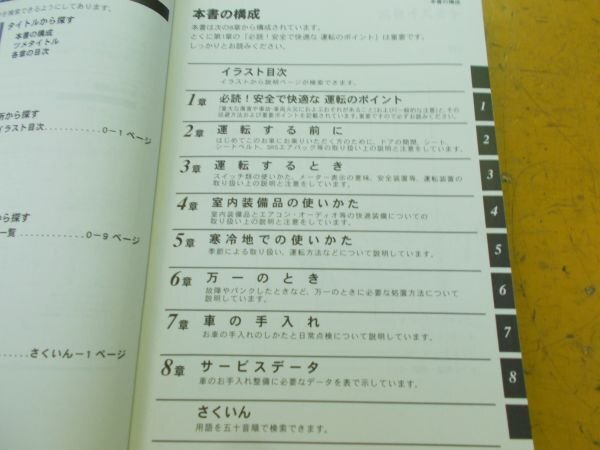 を検索できるようにしてあります。
タイトルから探す
本書の構成
ツメタイトル
各章の目次
所から探す
イラスト目次 ........ 0−1 ページ
から探す
一覧 ........ 0−9 ページ
........ さくいん−1 ページ
本書の構成
本書の構成
本書は次の8章から構成されています。
とくに第1章の「必読!安全で快適な 運転のポイント」は重要です。
しっかりとお読みください。
イラスト目次
イラストから説明ページが検索できます。
1章 必読!安全で快適な 運転のポイント
「重大な傷害や事故・車両火災におよぶおそれがあること」および「一般的な注意」と、その
回避方法および重要ポイントを記載されています。重要ですので必ずお読みください。
2章 運転する前に
はじめてこのお車にお乗りいただく方のために、ドアの開閉、シート、
シートベルト、SRSエアバッグ等の取り扱い上の説明と注意をしています。
3章 運転するとき
スイッチ類の使いかた、メーター表示の意味、安全装置等、運転装置の
取り扱い上の説明と注意をしています。
4章 室内装備品の使いかた
室内装備品とエアコン・オーディオ等の快適装備についての
取り扱い上の説明と注意をしています。
5章 寒冷地での使いかた
季節による取り扱い、運転方法などについて説明しています。
6章 万一のとき
故障やパンクしたときなど、万一のときに必要な処置方法について
説明しています。
7章 車の手入れ
お車の手入れのしかたと日常点検について説明しています。
8章 サービスデータ
車のお手入れ整備に必要なデータを表で示しています。
さくいん
用語を五十音順で検索できます。
1
2
3
4
5
6
7
8